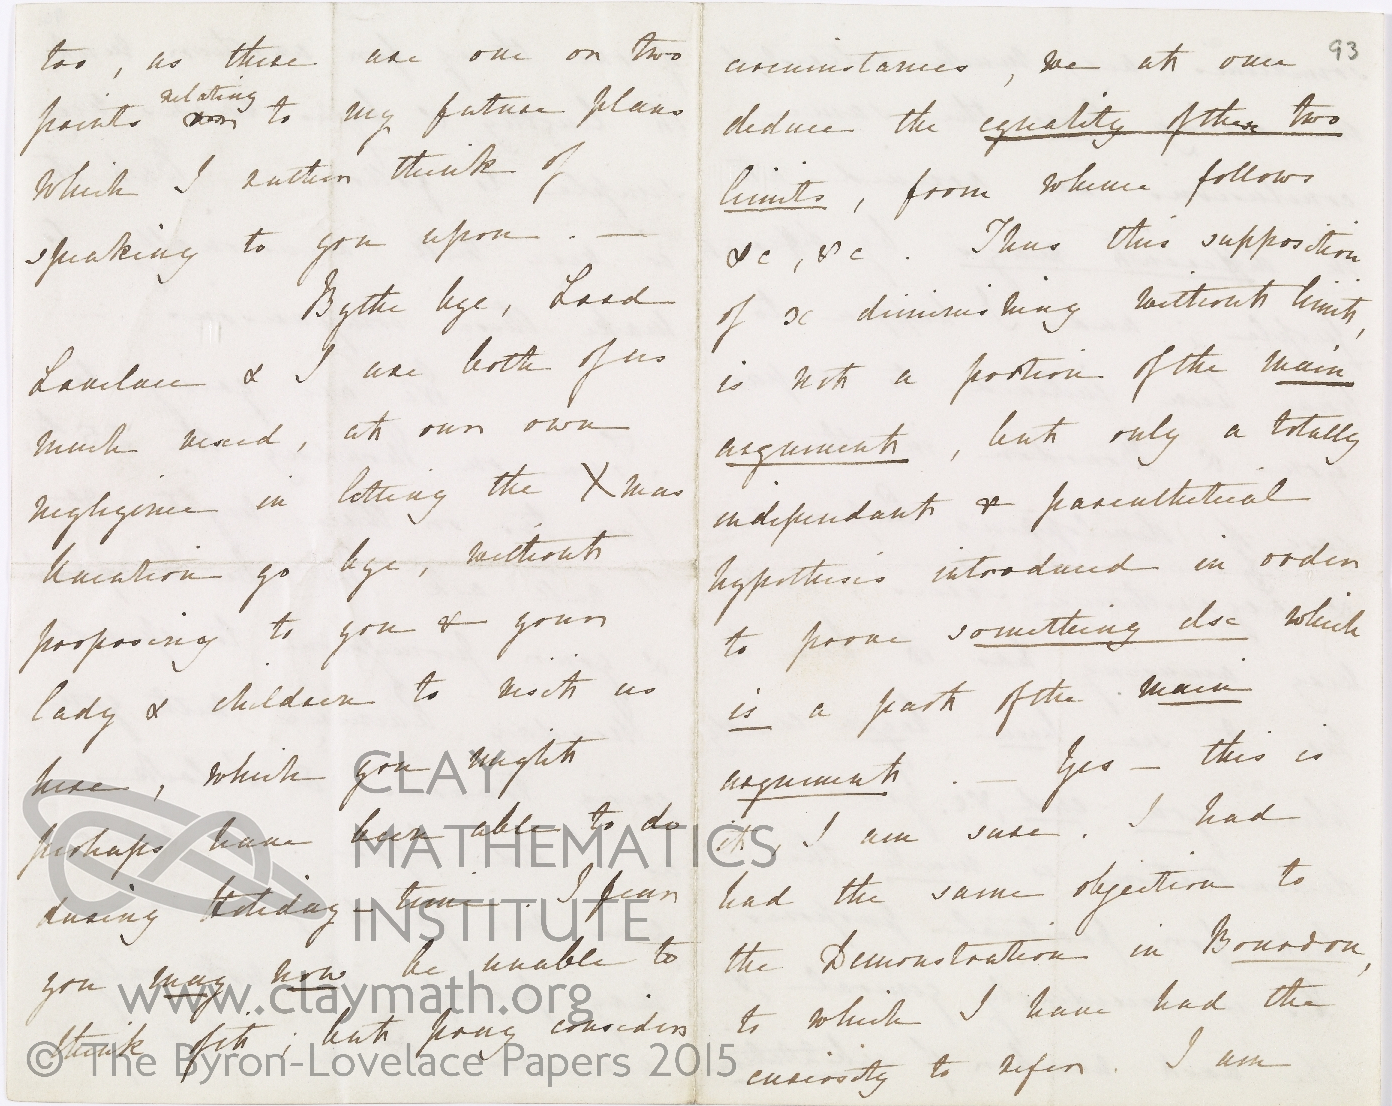 too, as there are one or two
points relating to my future plans
which I rather think of
speaking to you upon. —
By the bye, Lord
Lovelace & I are both of us
much vexed, at our own
negligence in letting the Xmas
Vacation go bye, without
proposing to you & your
lady & children to visit us
here, which you might
perhaps have been able to do
during Holiday-time. I fear
you may now be unable to
think of it; but pray consider
93
circumstances, we at once
deduce the equality of these two
limits, from whence follows
&c, &c. Thus this supposition
of x diminishing without limit,
is not a portion of the main
argument, but only a totally
independant & parenthetical
hypothesis introduced in order
to prove something else which
is a part of the main
argument. — Yes — this is
it, I am sure. I had
had the same objection to
the Demonstration in Bourdon,
to which I have had the
curiosity to refer. I am
CLAY
MATHEMATICS
INSTITUTE
www.claymath.org
© The Byron-Lovelace Papers 2015